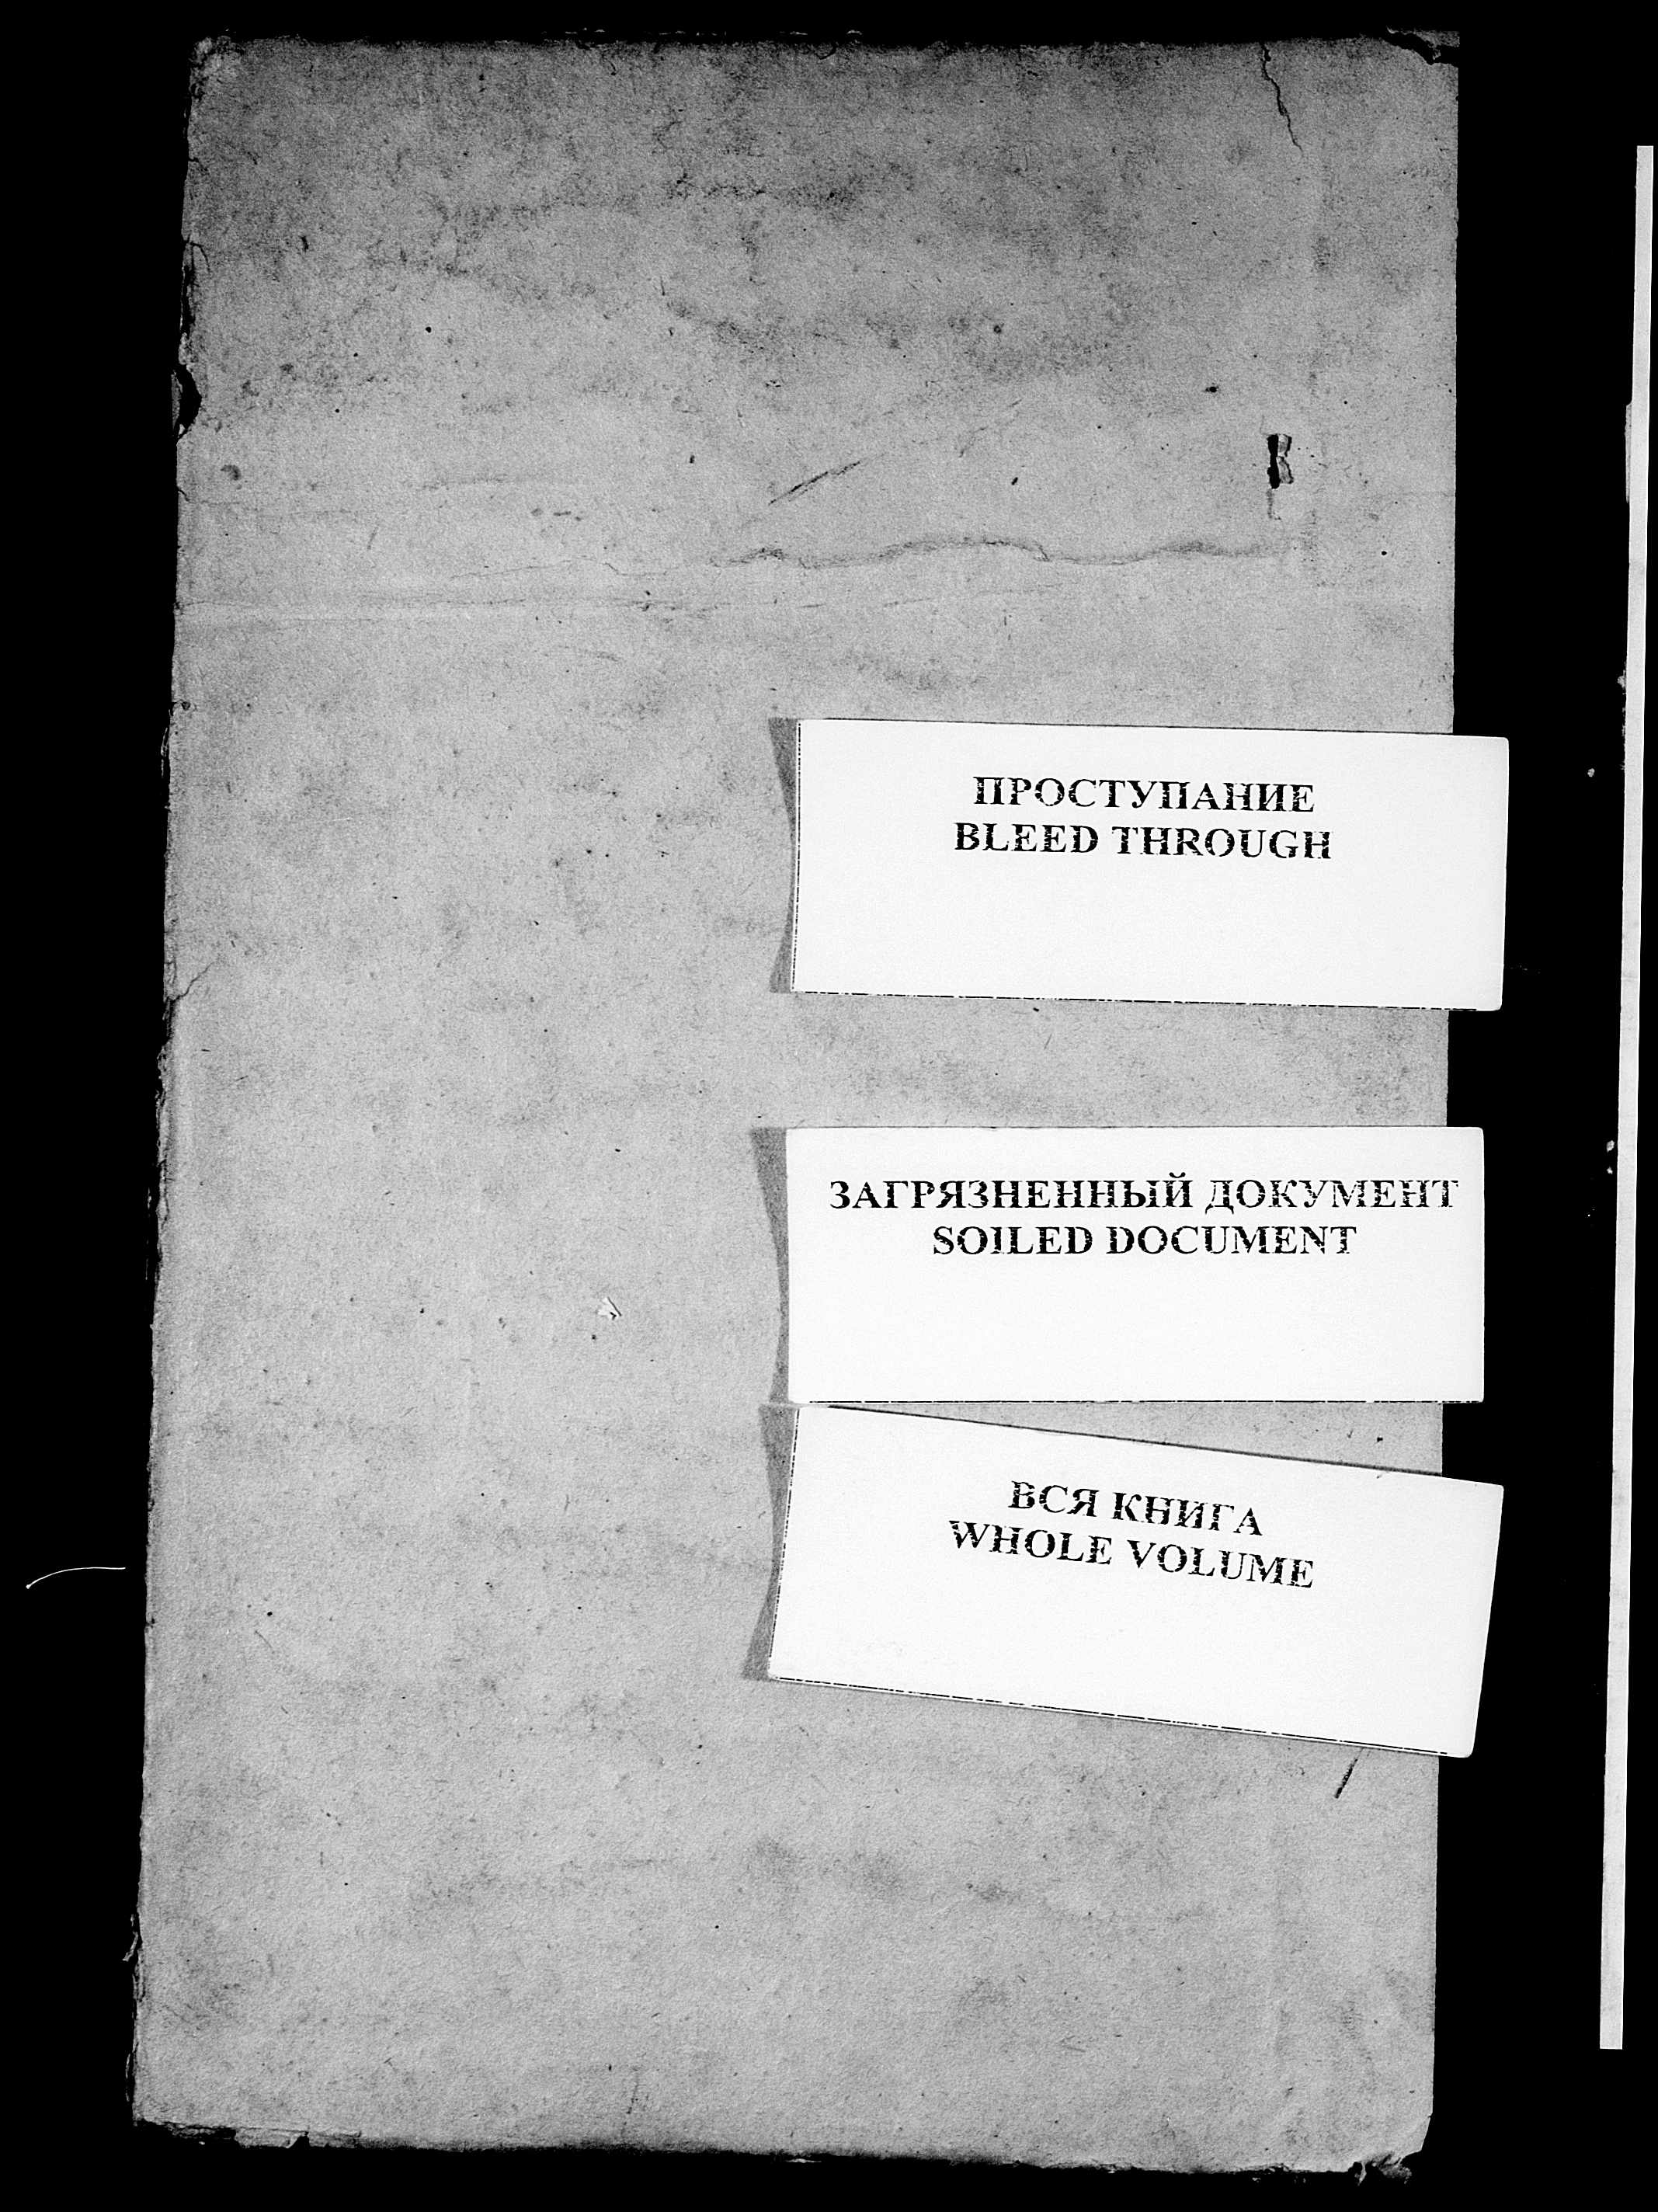 ПРОСТУПАНИЕ
BLEED THROUGH
ЗАГРЯЗНЕННЫЙ ДОКУМЕНТ
SOILED DOCUMENT
ВСЯ КНИГА
WHOLE VOLUME